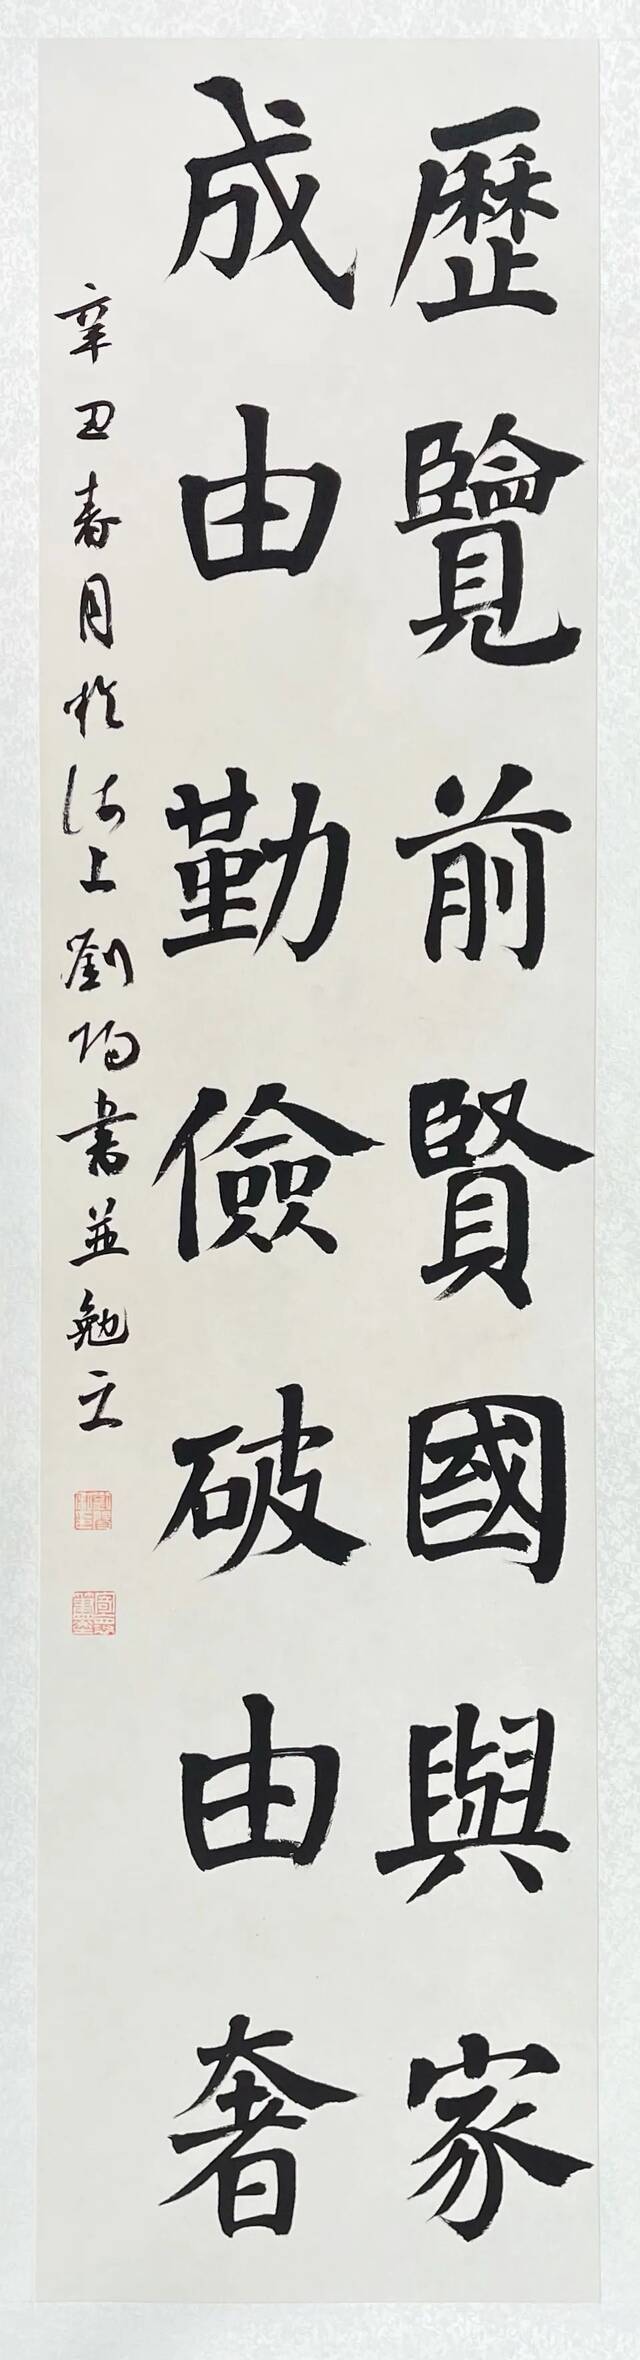 歷覽前賢國與家
成由勤儉破由奢
辛丑春月於海上劉陽書並勉之